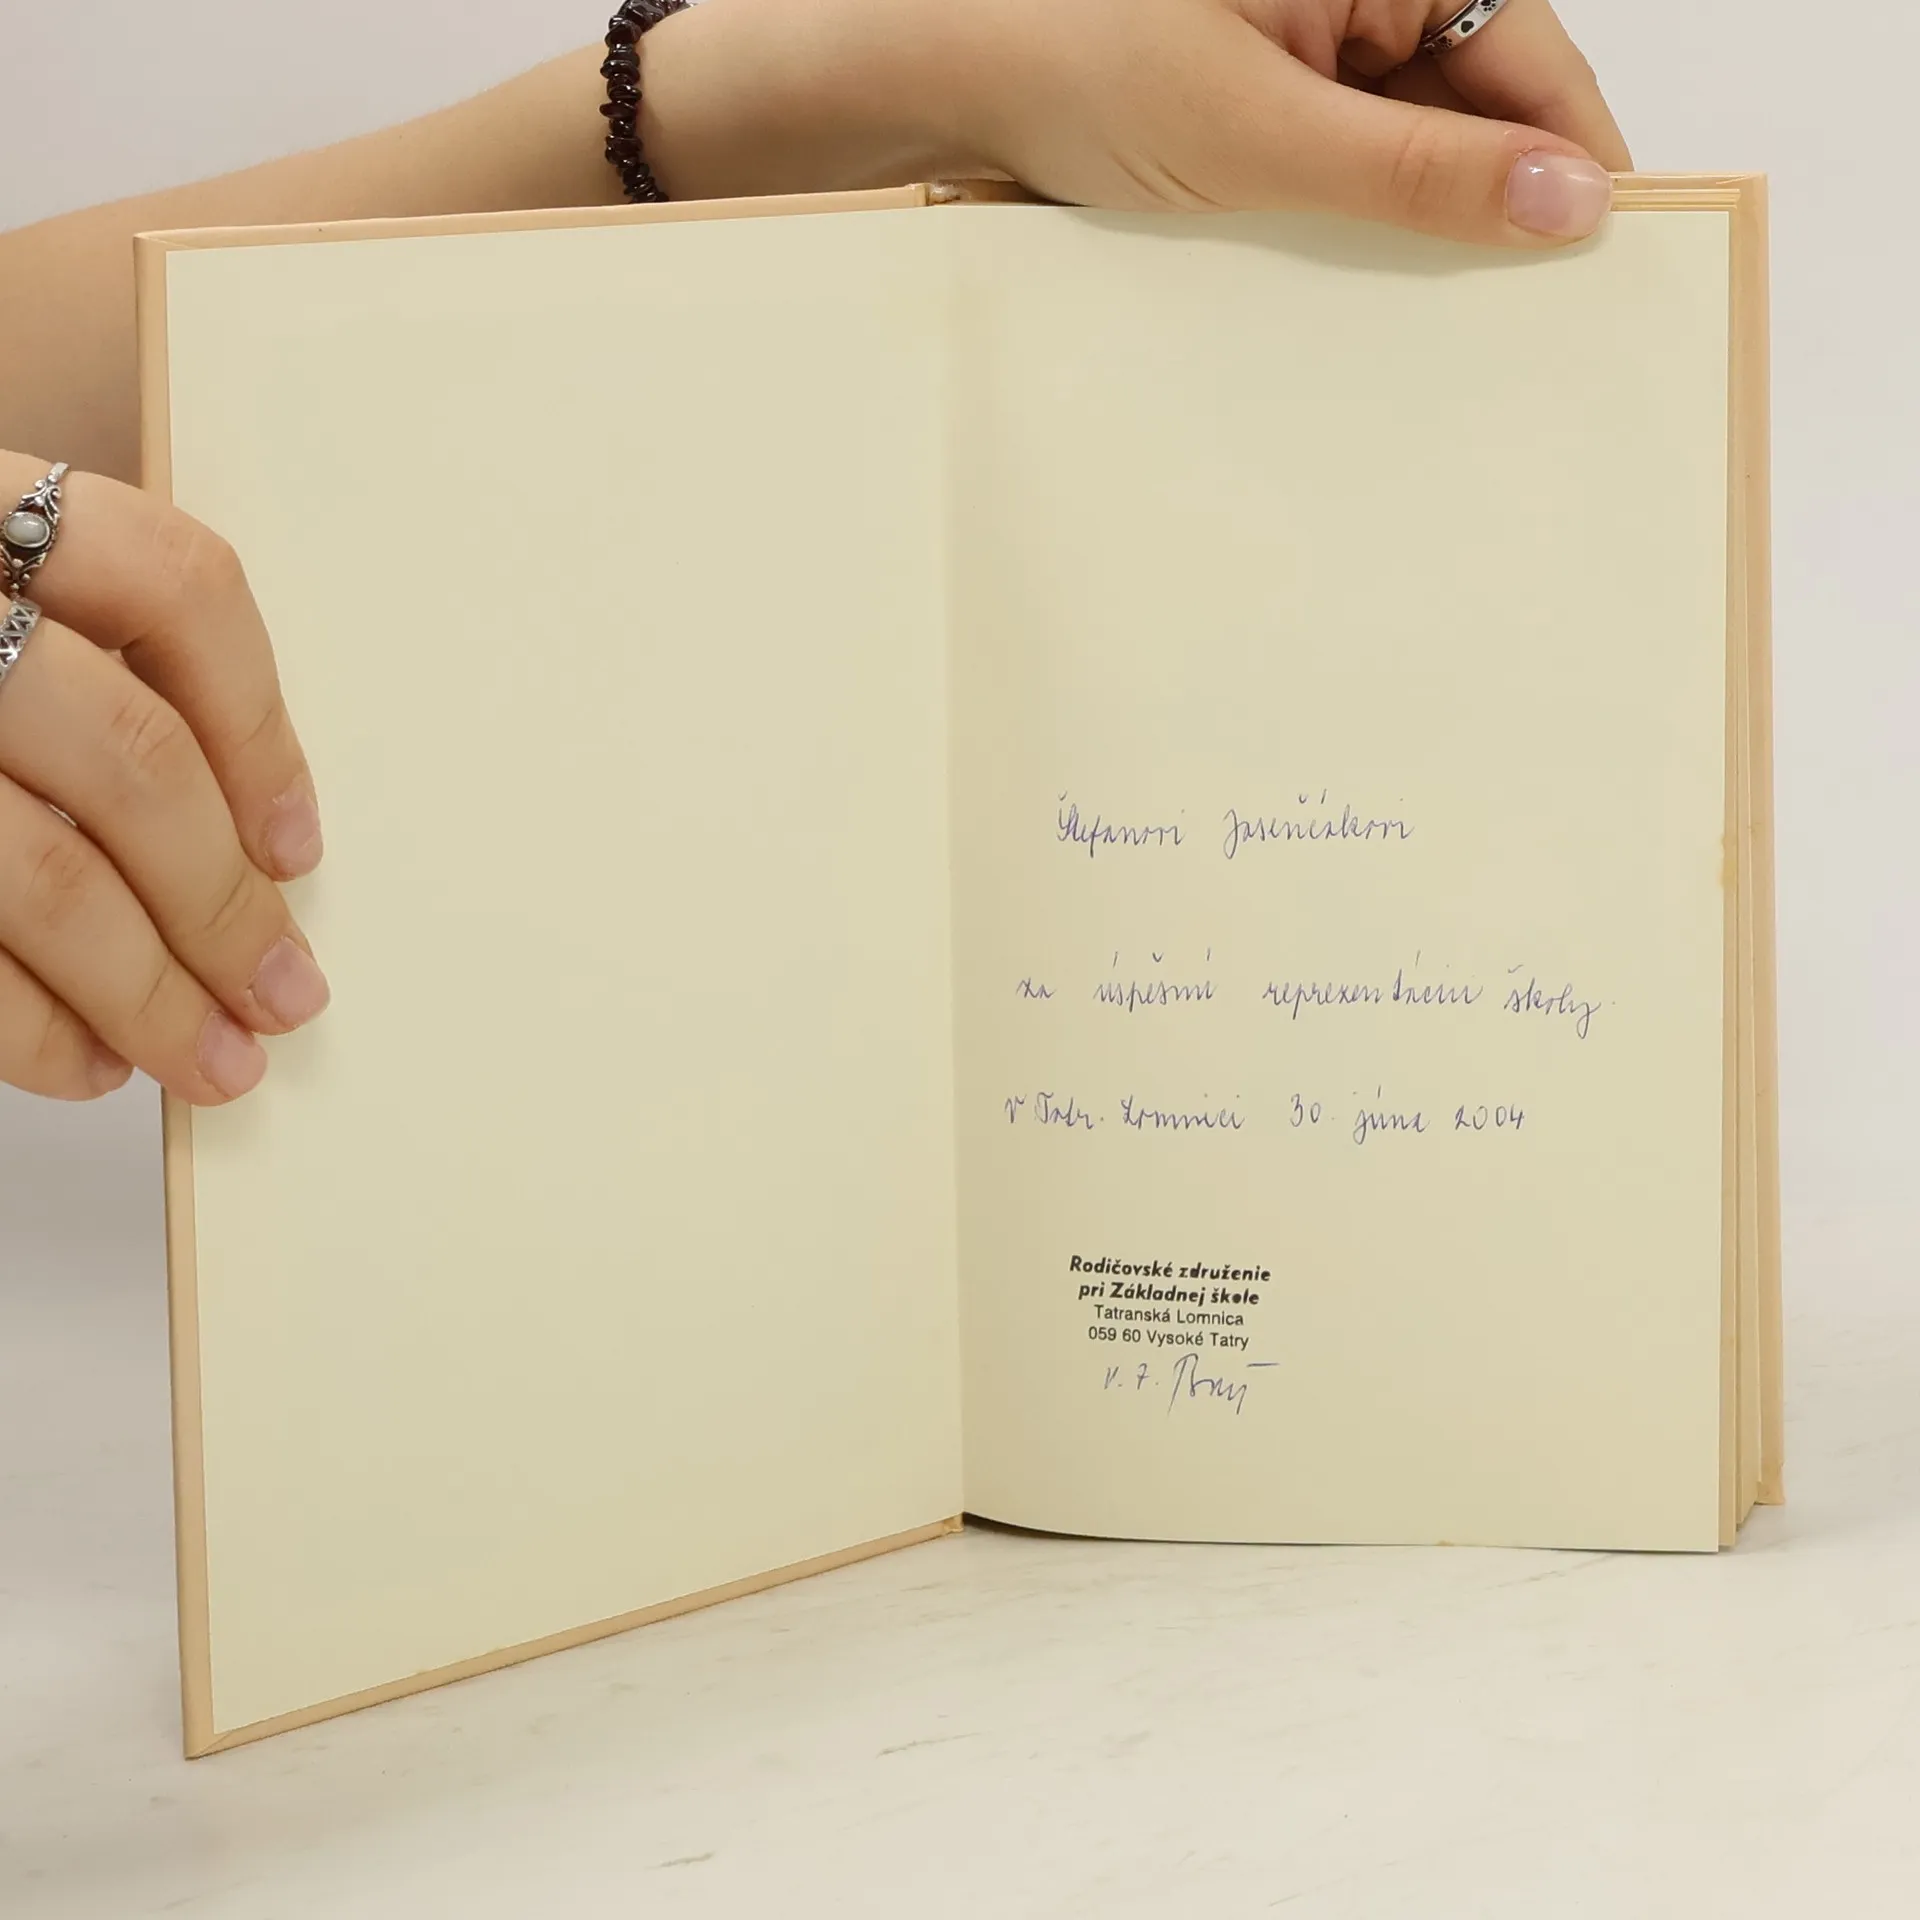 Štefanovi Jasenčákovi
za úspešnú reprezentáciu školy.
V Tatr. Lomnici 30. júna 2004
Rodičovské združenie
pri Základnej škole
Tatranská Lomnica
059 60 Vysoké Tatry